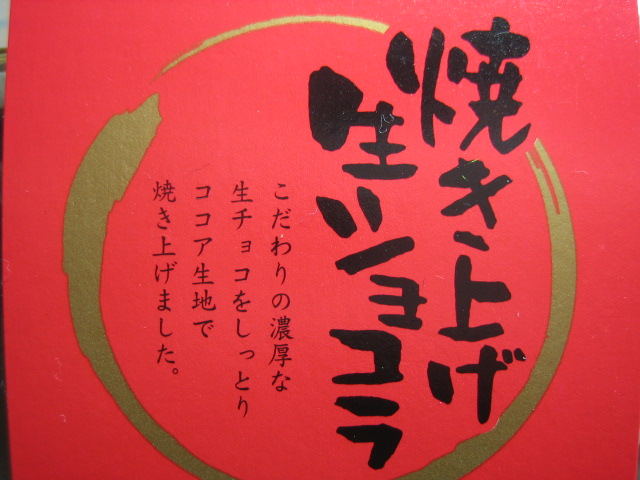 焼き上げ
生ショコラ
こだわりの濃厚な
生チョコをしっとり
ココア生地で
焼き上げました。